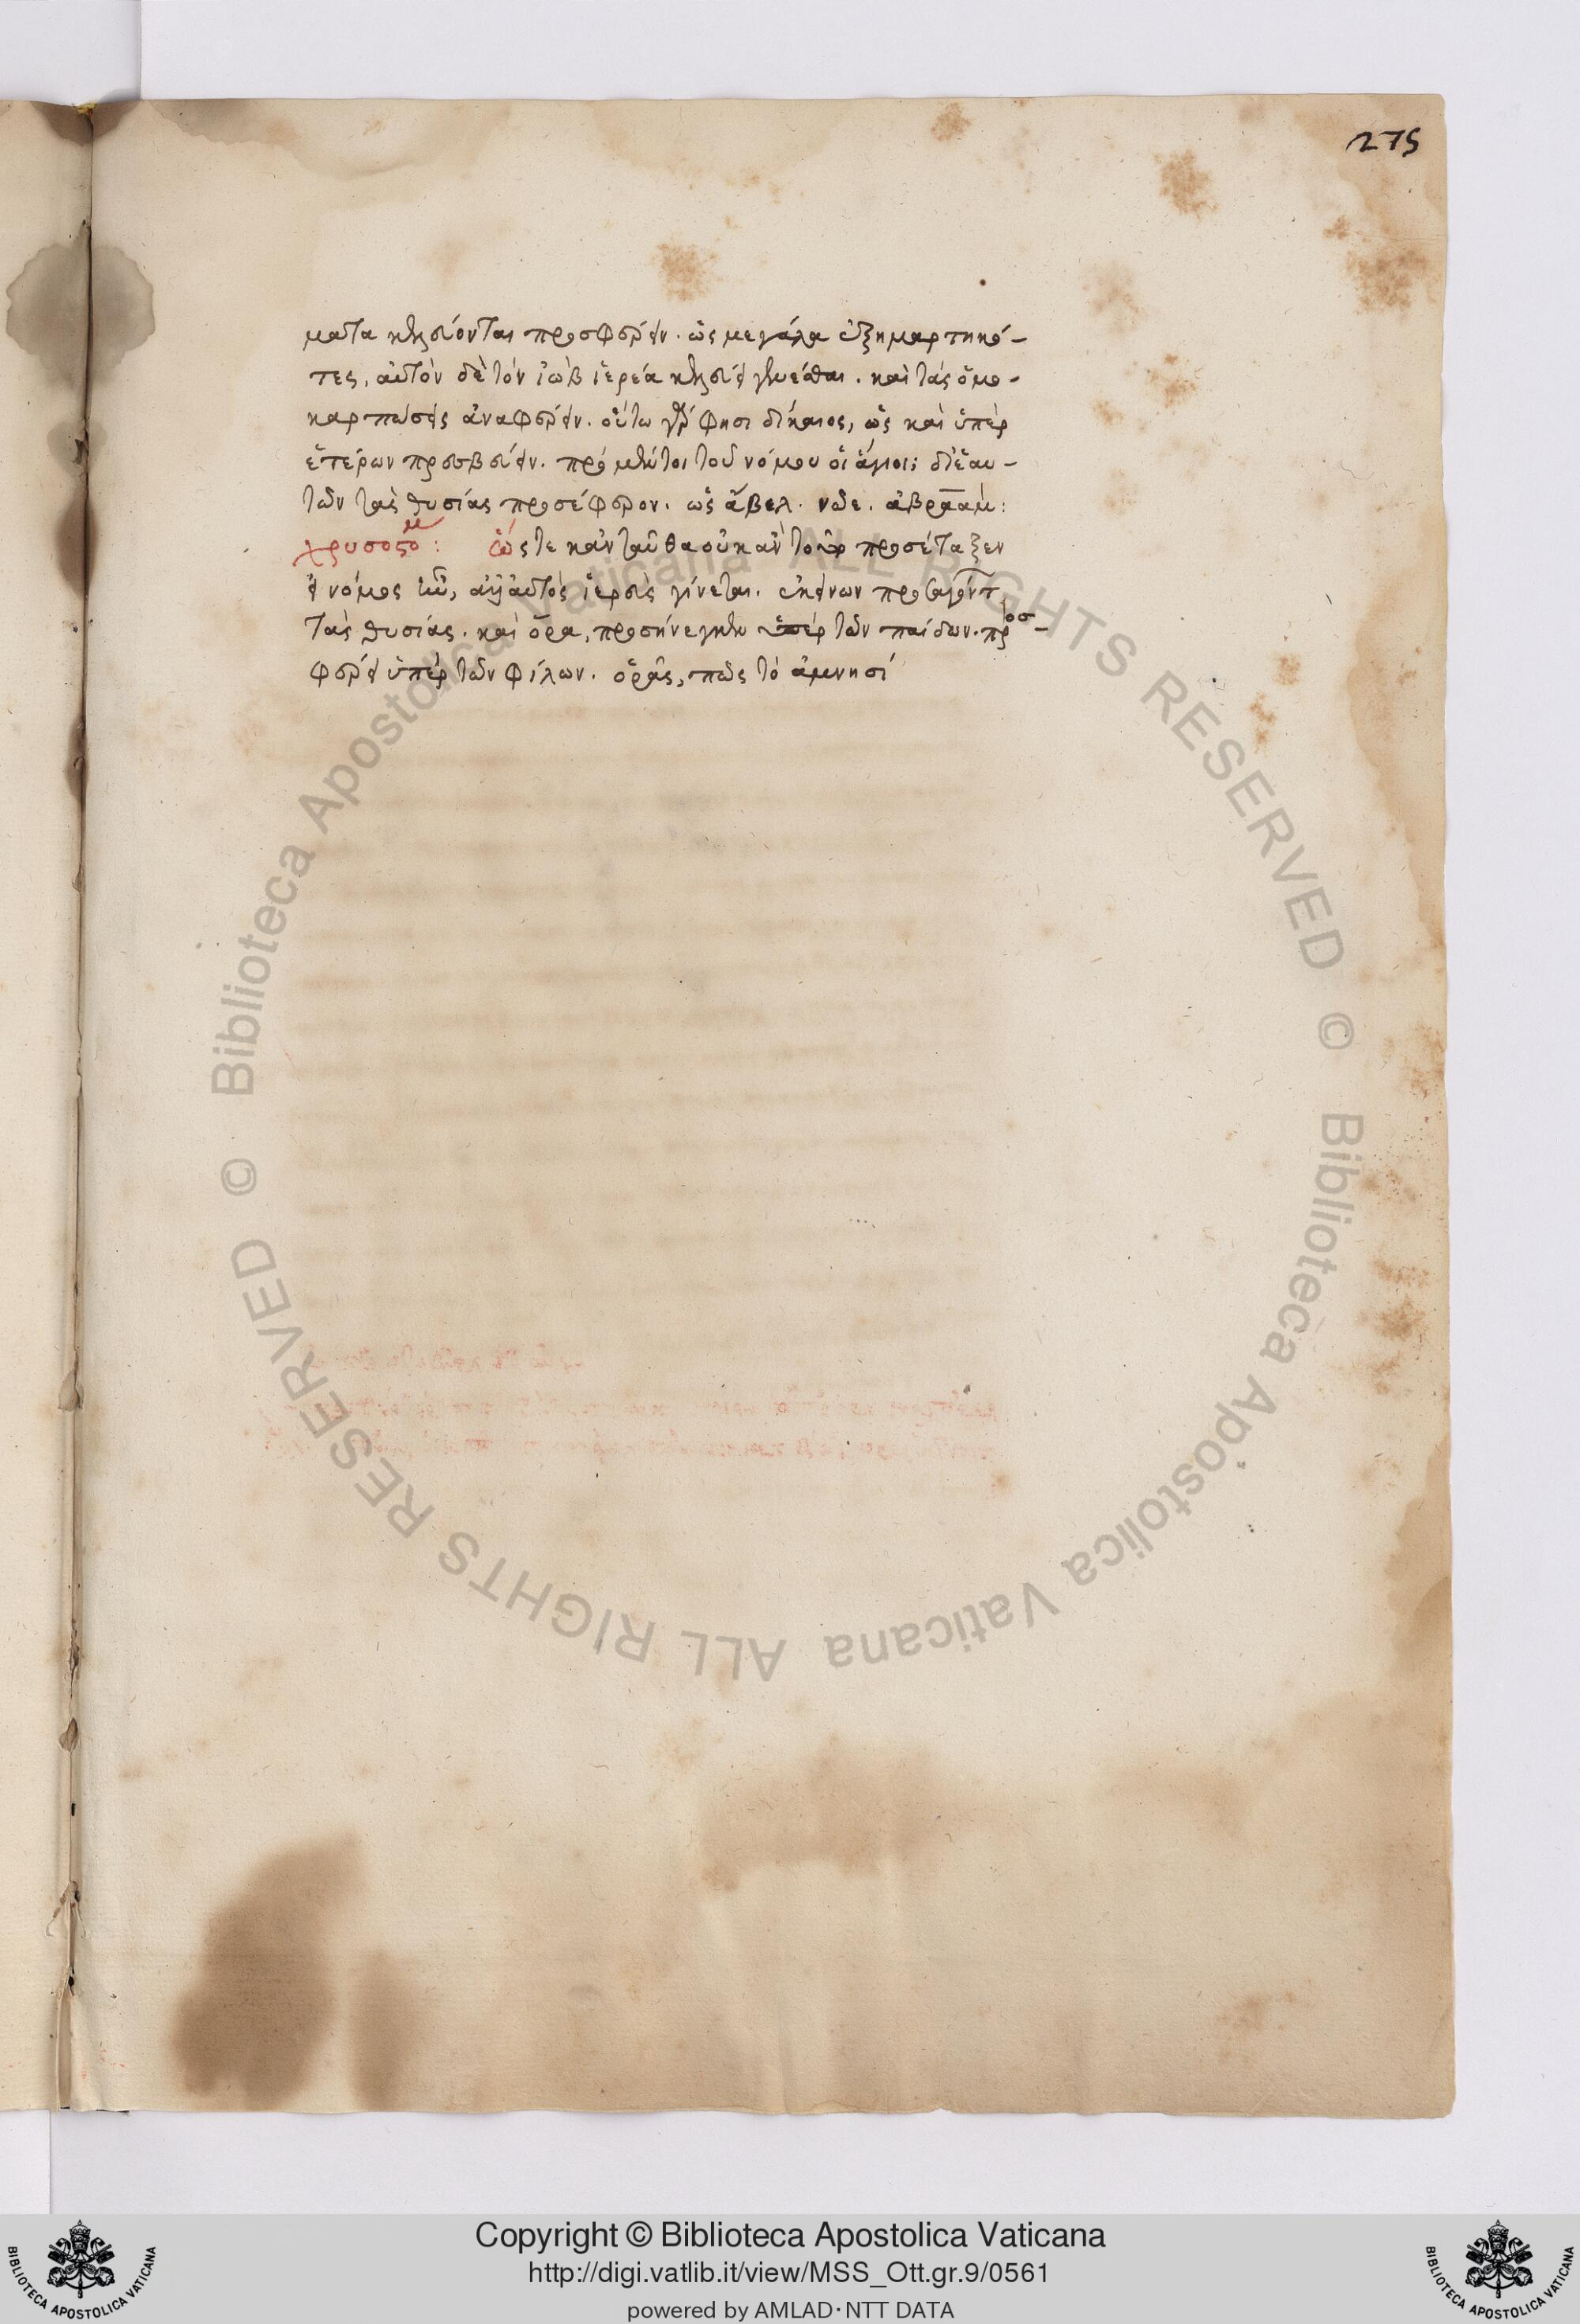 275
ματα κελεύονται προσφέρειν. ὡς μεγάλα ἐξημαρτηκό-
τες, αὐτὸν δὲ τὸν ἰὼβ ἱερέα κελεύει γενέσθαι. καὶ τὰς ὁλο-
καρπώσεις ἀναφέρειν. οὕτω γάρ φησι δίκαιος, ὡς καὶ ὑπὲρ
ἑτέρων πρεσβεύειν. πρὸ μέντοι τοῦ νόμου οἱ ἅγιοι; δι' ἑαυ-
τῶν τὰς θυσίας προσέφερον. ὡς ἄβελ. νῶε. ἀβραάμ:
χρυσοστομ: ὥστε κἀνταῦθα οὐκ ἂν προσέταξεν
εἰ νόμος ἦν, ἀλλ' αὐτὸς ἱερεὺς γίνεται. ἐκείνων προσαγόντ
τὰς θυσίας. καὶ ὅρα, προσήνεγκεν ὑπὲρ τῶν παίδων. προσ-
φέρει ὑπὲρ τῶν φίλων. ὁρᾷς, πῶς τὸ ἀμνησί
© Biblioteca Apostolica Vaticana ALL RIGHTS RESERVED
© Biblioteca Apostolica Vaticana ALL RIGHTS RESERVED
Copyright © Biblioteca Apostolica Vaticana
http://digi.vatlib.it/view/MSS_Ott.gr.9/0561
powered by AMLAD·NTT DATA
BIBLIOTECA APOSTOLICA VATICANA
BIBLIOTECA APOSTOLICA VATICANA